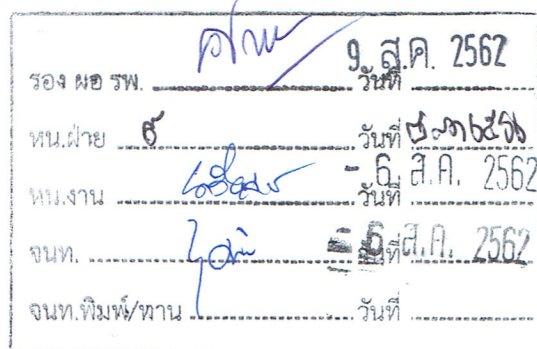 รอง ผอ รพ. วันที่ 9 ส.ค. 2562
หน.ฝ่าย วันที่
หน.งาน วันที่ - 6 ส.ค. 2562
จนท. วันที่ - 6 ส.ค. 2562
จนท.พิมพ์/ทาน วันที่